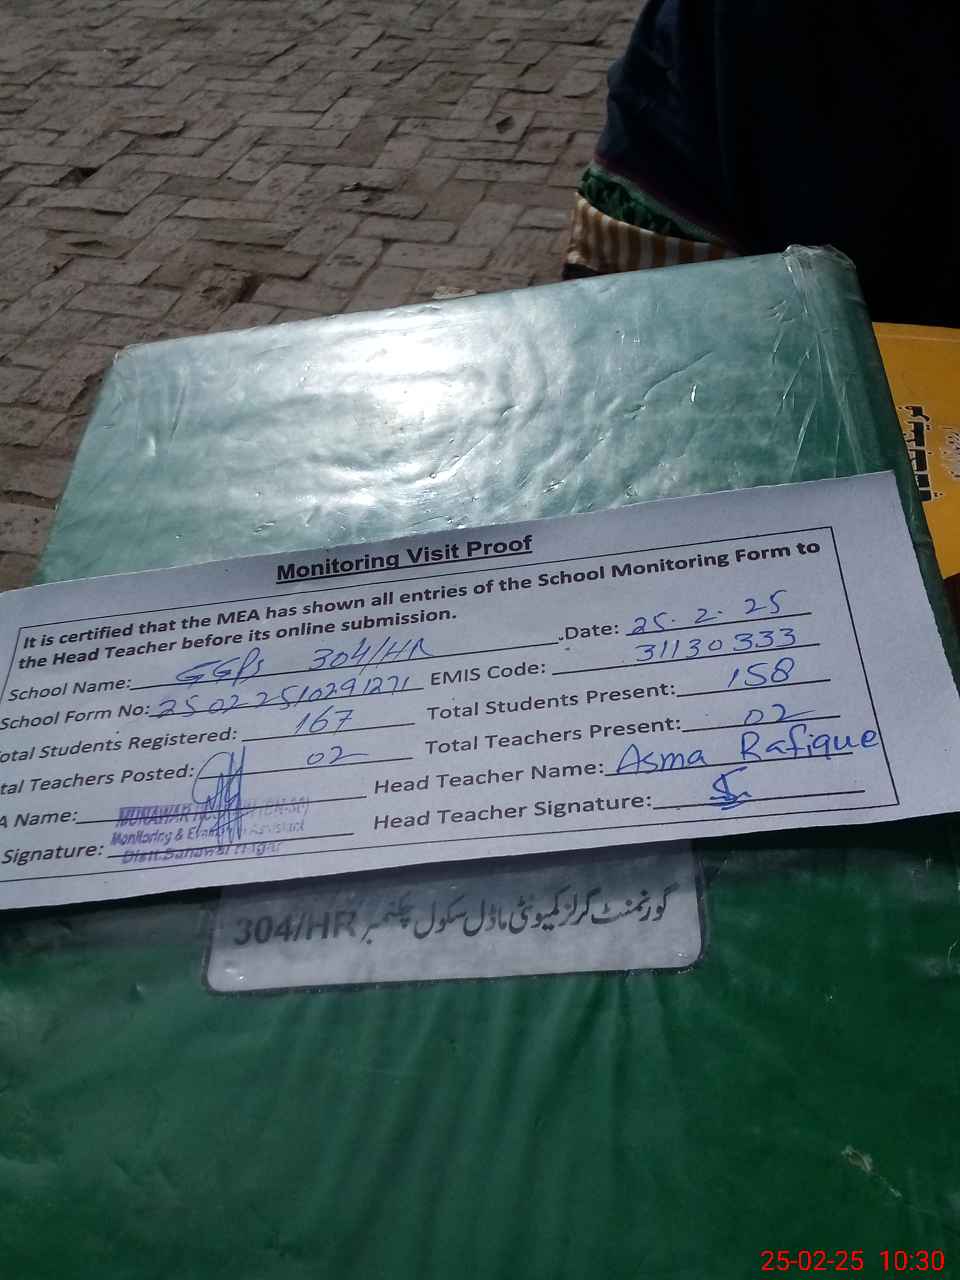 Monitoring Visit Proof
It is certified that the MEA has shown all entries of the School Monitoring Form to
the Head Teacher before its online submission.
Date: 25.2.25
School Name: GGPS 304/HR
EMIS Code: 31130333
School Form No: 25022510291271
Total Students Present: 158
otal Students Registered: 167
Total Teachers Present: 02
tal Teachers Posted: 02
Head Teacher Name: Asma Rafique
A Name: MUNAWAR
Monitoring & Assistant
Head Teacher Signature:
Signature:
Distt. Bahawal Nagar
گورنمنٹ گرلز کمیونٹی ماڈل سکول چکنمبر 304/HR
25-02-25 10:30